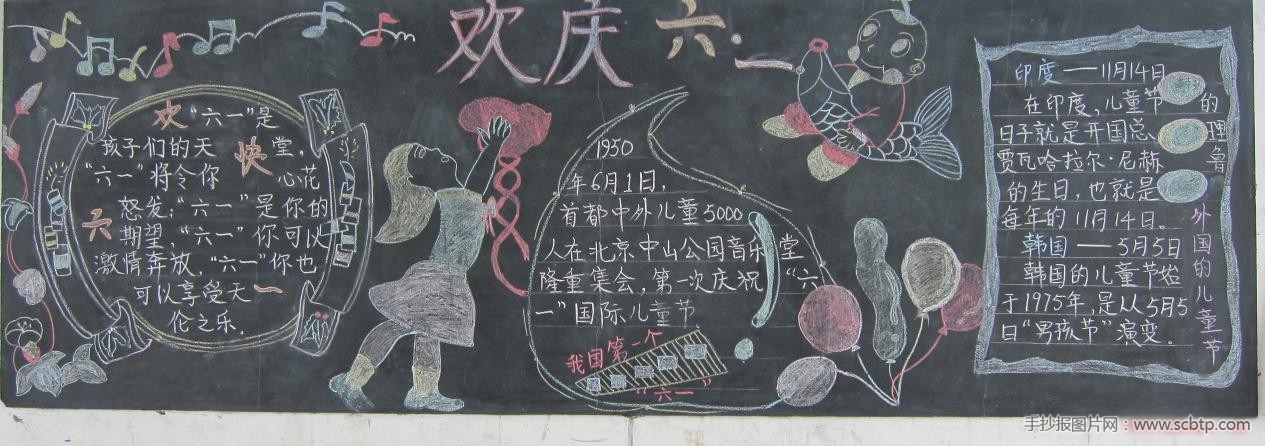 欢庆六·一
欢“六一”是
孩子们的天快堂，
“六一”将令你心花
怒发；“六一”是你的
六期望，“六一”你可以
激情奔放，“六一”你也
可以享受天一
伦之乐。
1950
年6月1日，
首都中外儿童5000
人在北京中山公园音乐堂
隆重集会，第一次庆祝“六
一”国际儿童节
我国第一个
“六一”
印度——11月14日
在印度，儿童节的
日子就是开国总理
贾瓦哈拉尔·尼赫鲁
的生日，也就是
每年的11月14日。
韩国——5月5日
韩国的儿童节始
于1975年，是从5月5
日“男孩节”演变。
外国的儿童节
手抄报图片网：www.scbtp.com